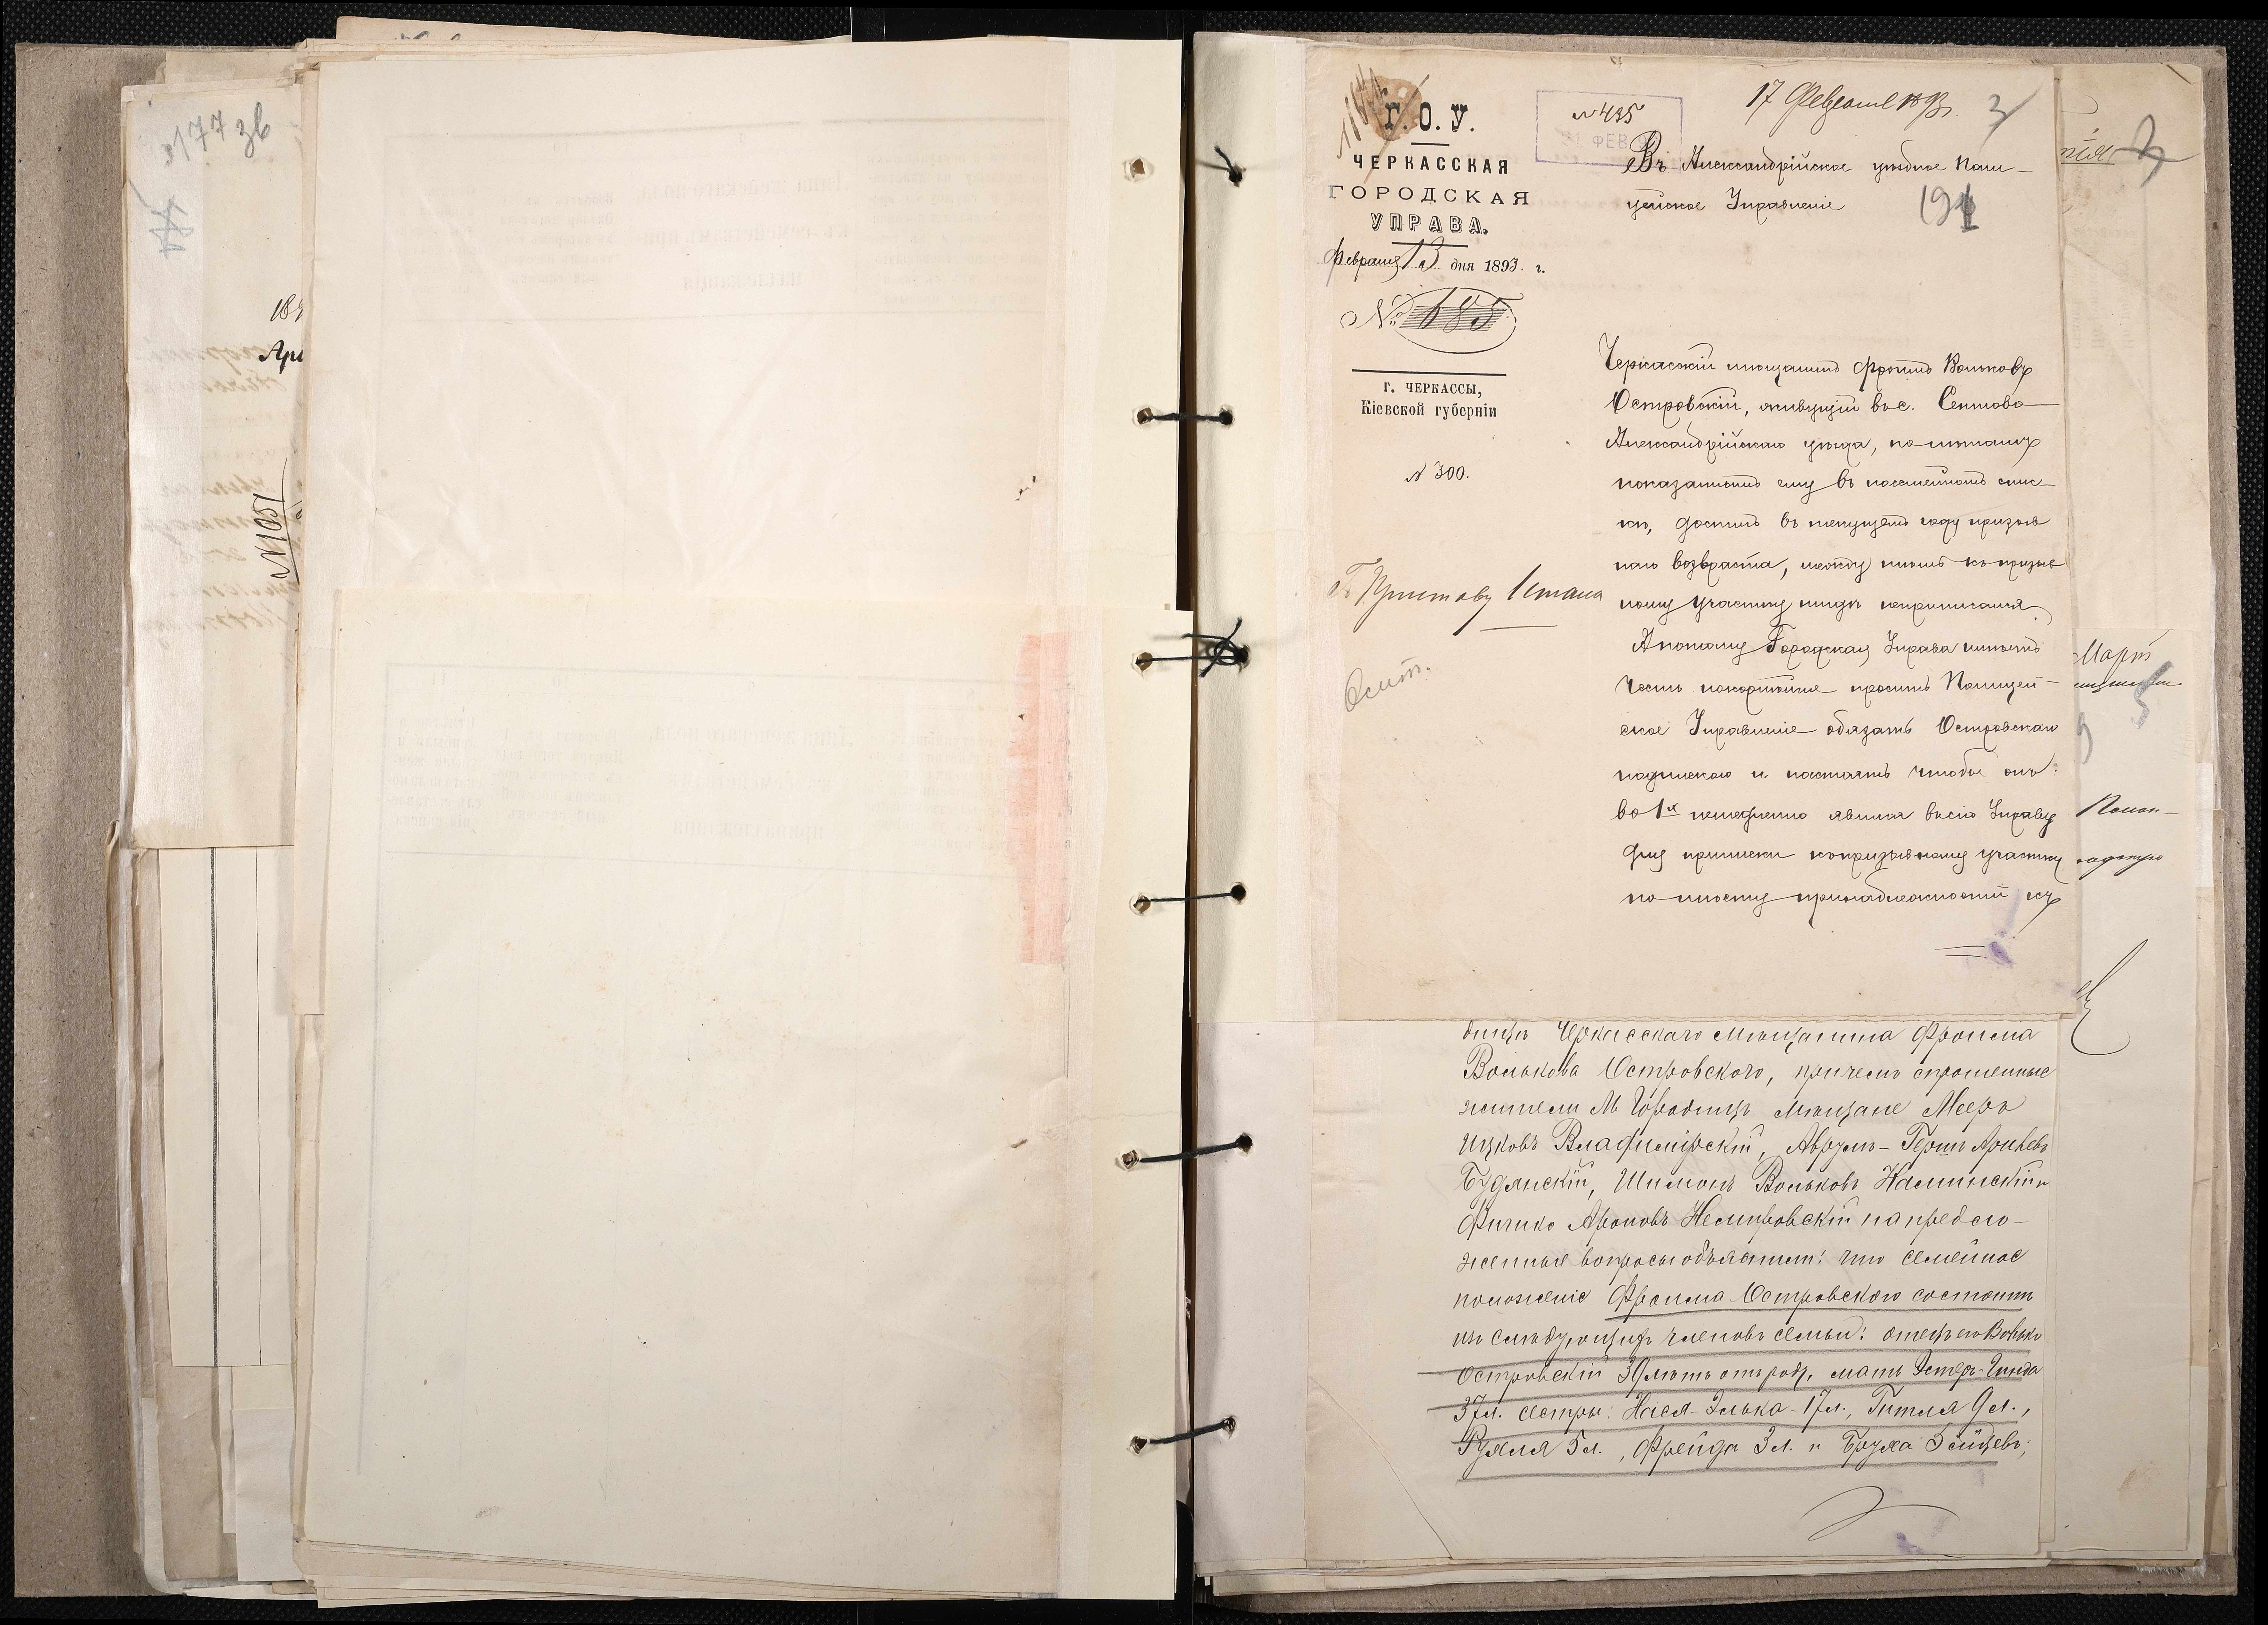 177 зв
№ 1051
Г. О. У.
ЧЕРКАССКАЯ
ГОРОДСКАЯ
УПРАВА.
Февраля 13 дня 1893 г.
№ 685
г. ЧЕРКАССЫ,
Кіевской губерніи
№ 300.
Г. Приставу 1 стана
№ 435
ФЕВ
17 Февраля 1893
3
Въ Александрійское уѣздное Поли-
цейское Управленіе
191
Черкасскій мѣщанинъ Фроимъ Вольковъ
Островскій, живущій въ с. Сентово
Александрійскаго уѣзда, по лѣтамъ
показаннымъ ему въ посемейномъ спис-
кѣ, достигъ въ текущемъ году призыв
наго возраста, между тѣмъ къ призыв
ному участку нигдѣ неприписался.
А потому Городская Управа имѣетъ
честь покорнѣйше просить Полицей-
ское Управленіе обязать Островскаго
подпискою и настоять чтобы онъ:
во 1х немедленно явился въ сію Управу
для приписки къ призывному участку
по мѣсту принадлежности къ
дищъ Черкасскаго мѣщанина Фроима
Волькова Островского, причемъ спрошенные
жители М Городищъ мѣщане Мееръ
Ицковъ Владимірскій, Аврумъ-Гершъ Арьевъ
Будянскій, Шимонъ Вольковъ Наминскій и
Фитько Ароновъ Немировскій на предло-
женные вопросы объяснили: что семейное
положеніе Фроима Островского состоитъ
изъ слѣдующихъ членовъ семьи: отецъ его Волько
Островскій 39 лѣтъ отъ роду, мать Эстеръ-Гинда
37 л. сестры: Нася-Элька-17 л., Гитля 9 л.,
Рухля 5 л., Фрейда 3 л. и Бруха 5 мѣсяцевъ;
Март